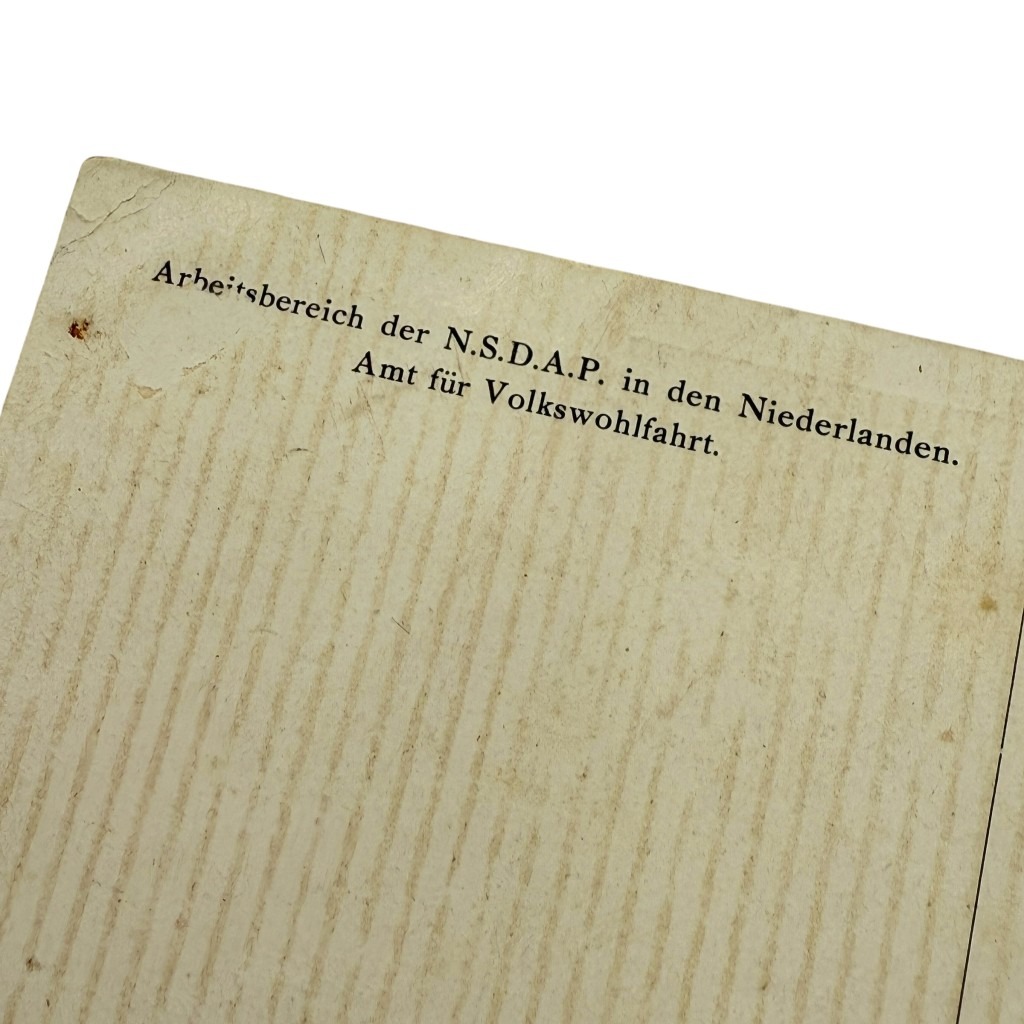 Arbeitsbereich der N.S.D.A.P. in den Niederlanden.
Amt für Volkswohlfahrt.